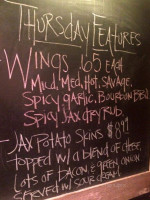 THURSDAY FEATURES
WINGS .65 EACH
MILD, MED, HOT, SAVAGE,
SPICY GARLIC, BOURBON BBQ,
SPICY JAX DRY RUB,
- JAX POTATO SKINS $8.99
TOPPED W/ A BLEND OF CHEESE,
LOTS OF BACON & GREEN ONION
SERVED W/ SOUR CREAM